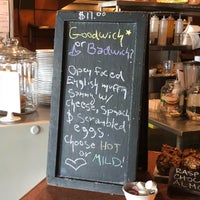 $11.00
Goodwich
or
Badwich?
Open faced
English muffin
Sammy w/
cheese, Spinach
& Scrambled
eggs.
Choose HOT
or MILD!
RASP
CHOC
ALMO